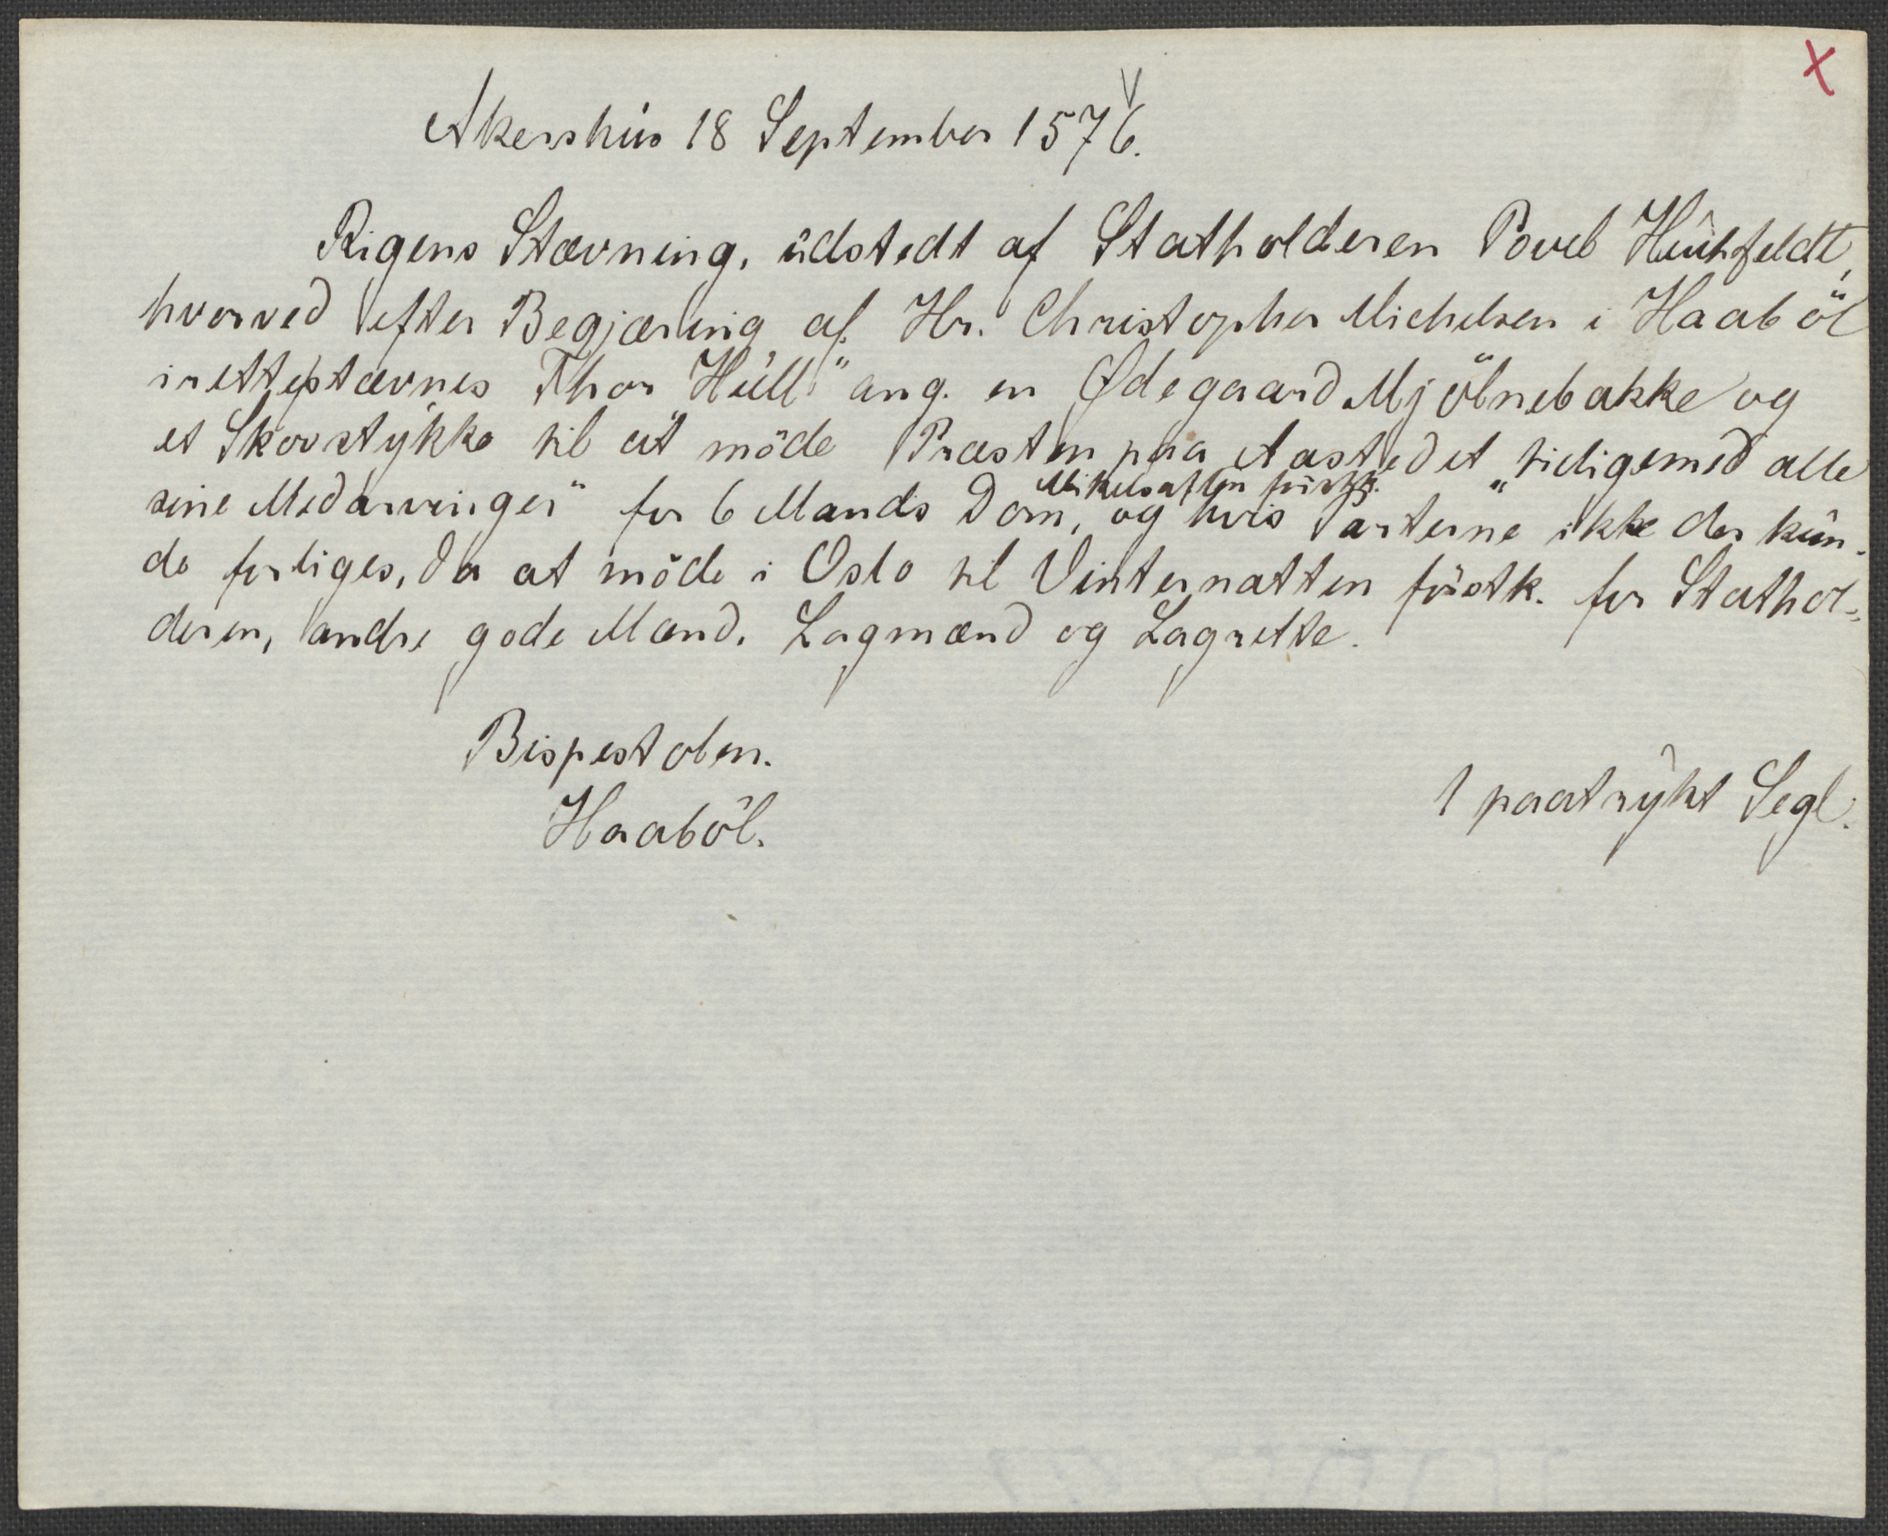 X
Akershus 18 September 1576.
Rigens Stævning, udstedt af Statholderen Povel Huitfeldt,
hvorved efter Begjæring af Hr. Christopher Michelsen i Haaböl
irettestævnes Thor Hüll" ang. en Ødegaard Mjölnebakke og
et Skovstykke til at möde Præsten paa Aastedet „tiligemed alle
sine Medarvinger" for 6 Mands Dom,
Mikelsaften förstk.
og hvis Parterne ikke der kun-
de forliges, da at möde i Oslo til Vinternatten förstk. for Stathol-
deren, andre gode Mænd, Lagmænd og Lagrette.
Bispestolen.
Haaböl.
1 paatrykt Segl.